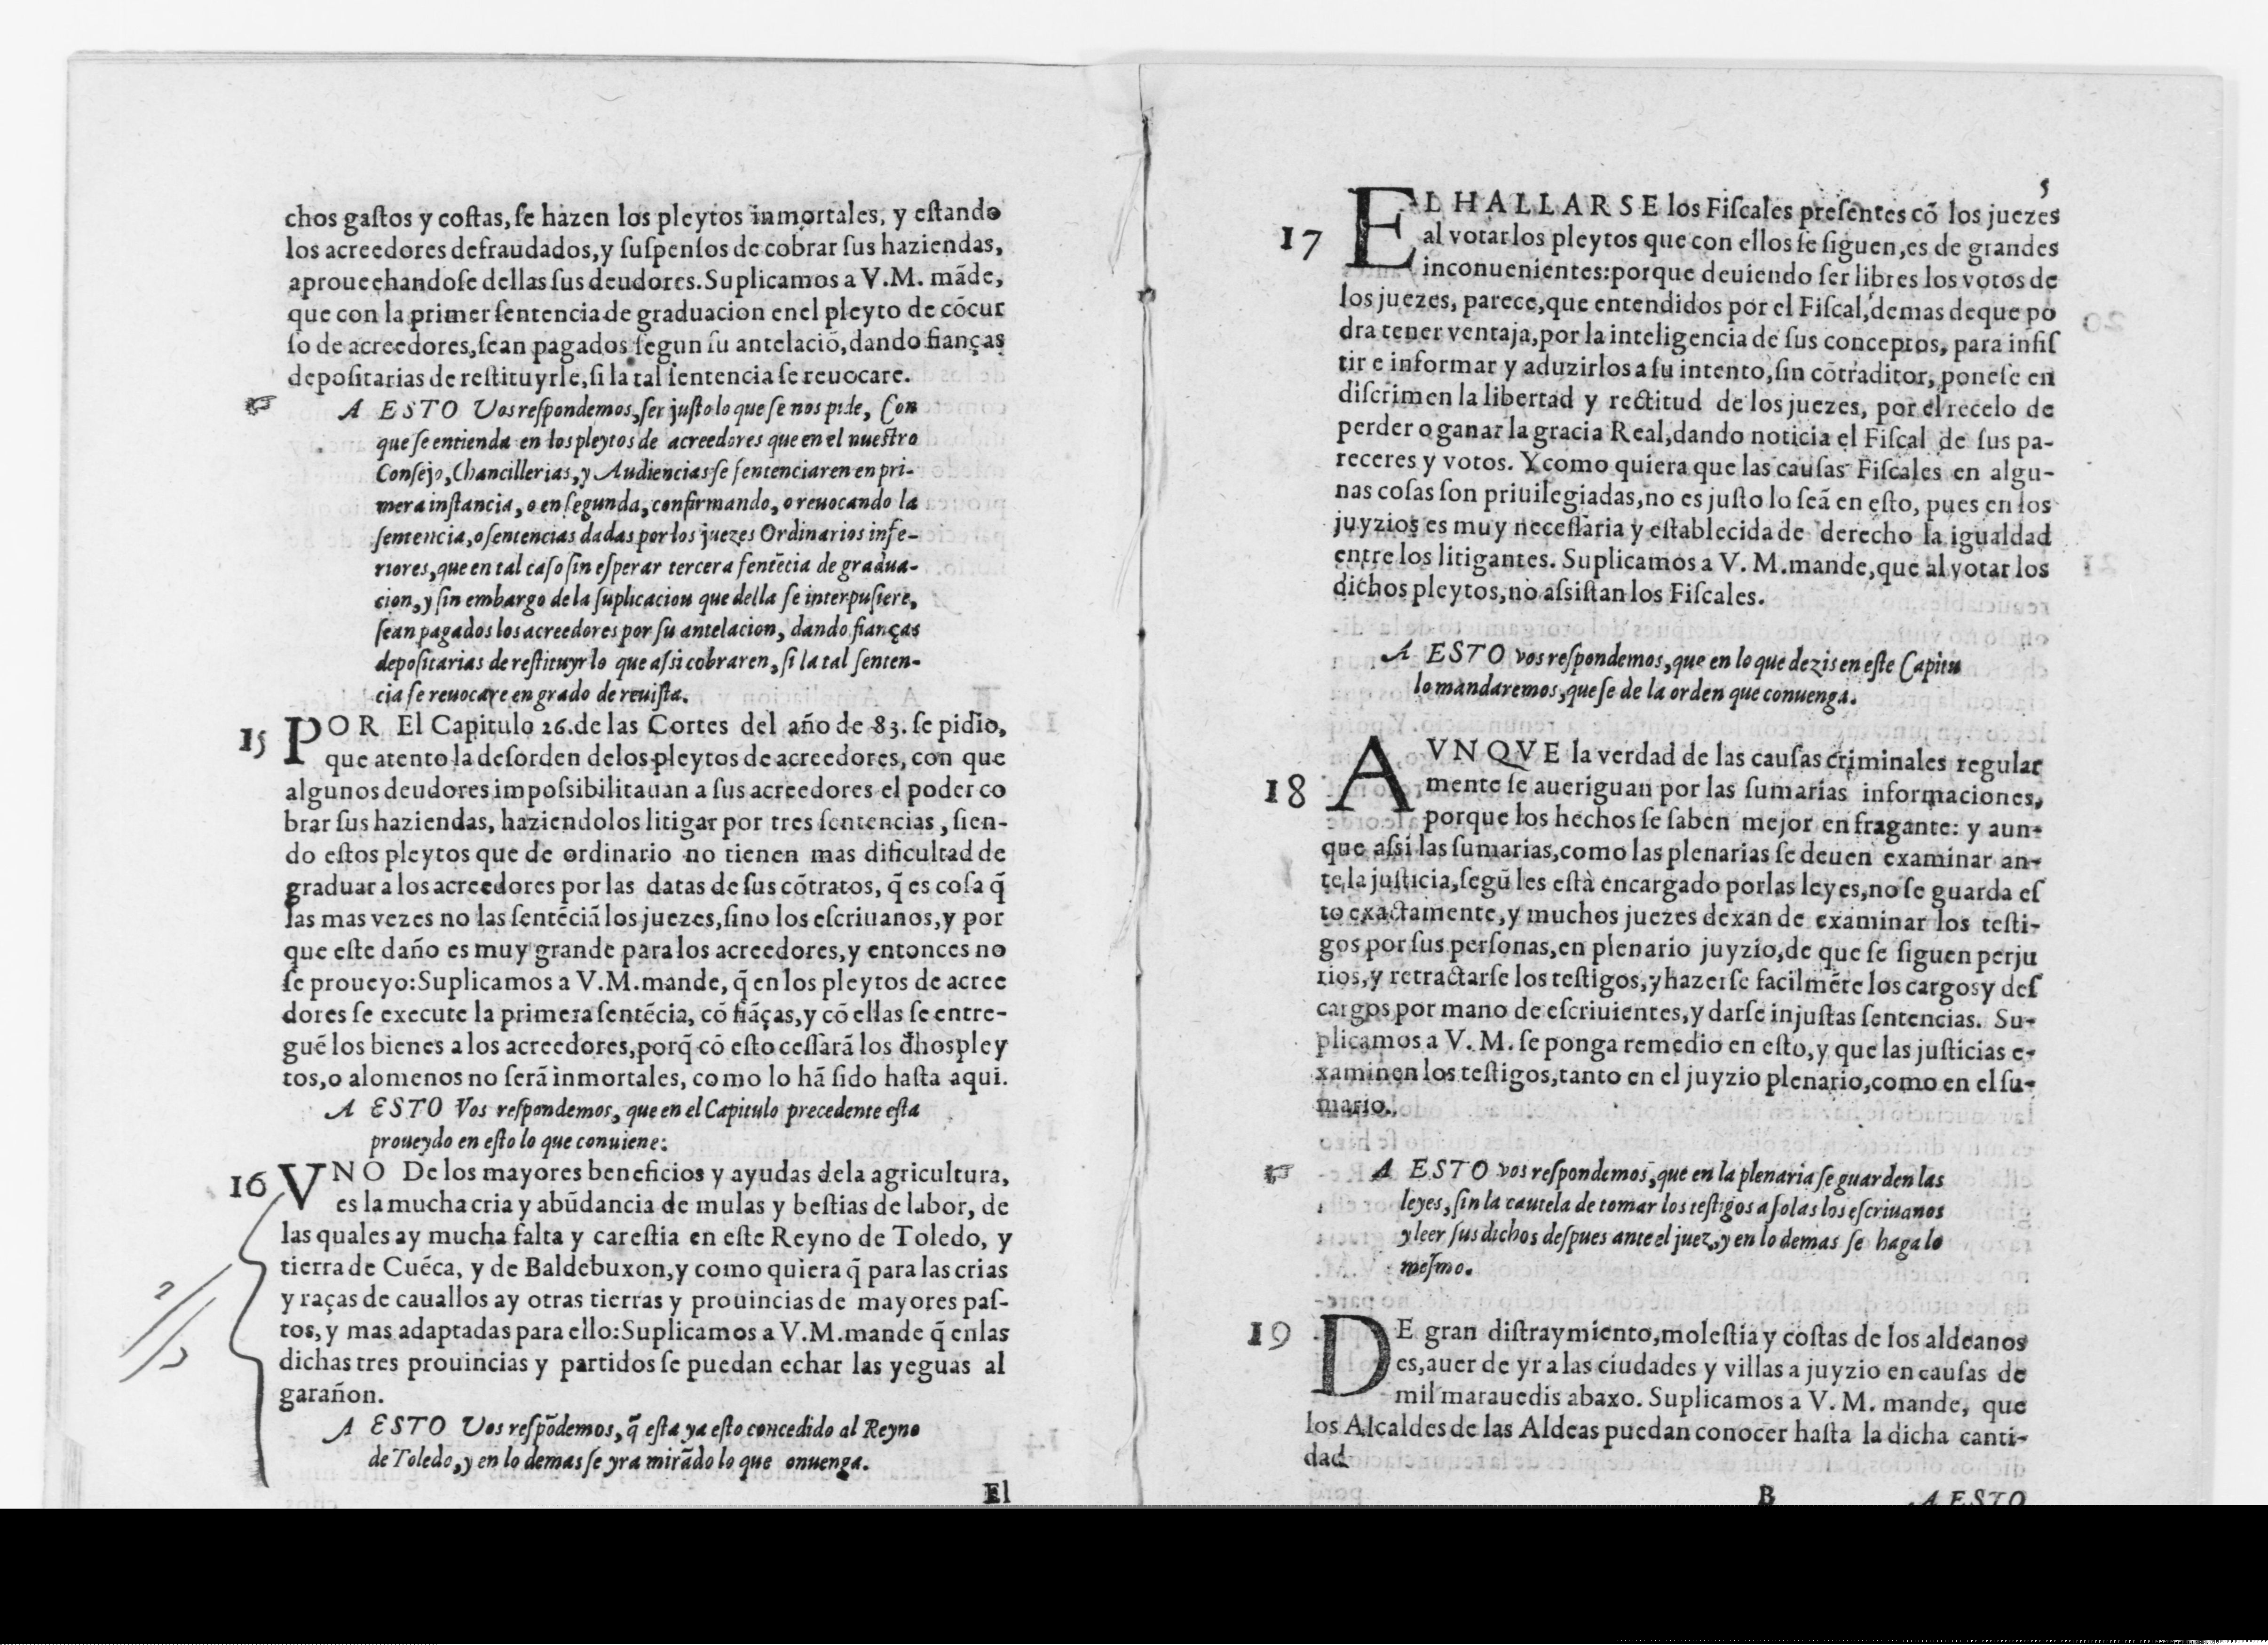 chos gaſtos y coſtas, ſe hazen los pleytos inmortales, y eſtando
los acreedores defraudados, y ſuſpenſos de cobrar ſus haziendas,
aprouechandoſe dellas ſus deudores. Suplicamos a V.M. mãde,
que con la primer ſentencia de graduacion enel pleyto de cõcur
ſo de acreedores, ſean pagados ſegun ſu antelaciõ, dando fianças
depoſitarias de reſtituyrle, ſi la tal ſentencia ſe reuocare.
A ESTO Vos reſpondemos, ſer juſto lo que ſe nos pide, Con
que ſe entienda en los pleytos de acreedores que en el nueſtro
Conſejo, Chancillerias, y Audiencias ſe ſentenciaren en pri-
mera inſtancia, o en ſegunda, confirmando, o reuocando la
ſentencia, o ſentencias dadas por los juezes Ordinarios infe-
riores, que en tal caſo ſin eſperar tercera ſentẽcia de gradua-
cion, y ſin embargo de la ſuplicacion que della ſe interpuſiere,
ſean pagados los acreedores por ſu antelacion, dando fianças
depoſitarias de reſtituyrlo que aſsi cobraren, ſi la tal ſenten-
cia ſe reuocare en grado de reuiſta.
15 POR El Capitulo 26. de las Cortes del año de 83. ſe pidio,
que atento la deſorden delos pleytos de acreedores, con que
algunos deudores impoſsibilitauan a ſus acreedores el poder co
brar ſus haziendas, haziendolos litigar por tres ſentencias, ſien-
do eſtos pleytos que de ordinario no tienen mas dificultad de
graduar a los acreedores por las datas de ſus cõtratos, q̃ es coſa q̃
las mas vezes no las ſentẽciã los juezes, ſino los eſcriuanos, y por
que eſte daño es muy grande para los acreedores, y entonces no
ſe proueyo: Suplicamos a V.M. mande, q̃ en los pleytos de acree
dores ſe execute la primera ſentẽcia, cõ fiãças, y cõ ellas ſe entre-
guẽ los bienes a los acreedores, porq̃ cõ eſto ceſſarã los dh̃os pley
tos, o alomenos no ſerã inmortales, como lo hã ſido haſta aqui.
A ESTO Vos reſpondemos, que en el Capitulo precedente eſta
proueydo en eſto lo que conuiene:
16 VNO De los mayores beneficios y ayudas dela agricultura,
es la mucha cria y abũdancia de mulas y beſtias de labor, de
las quales ay mucha falta y careſtia en eſte Reyno de Toledo, y
tierra de Cuẽca, y de Baldebuxon, y como quiera q̃ para las crias
y raças de cauallos ay otras tierras y prouincias de mayores paſ-
tos, y mas adaptadas para ello: Suplicamos a V.M. mande q̃ enlas
dichas tres prouincias y partidos ſe puedan echar las yeguas al
garañon.
A ESTO Vos reſpõdemos, q̃ eſta ya eſto concedido al Reyno
de Toledo, y en lo demas ſe yra mirãdo lo que onuenga.
El
5
17 EL HALLARSE los Fiſcales preſentes cõ los juezes
al votar los pleytos que con ellos ſe ſiguen, es de grandes
inconuenientes: porque deuiendo ſer libres los votos de
los juezes, parece, que entendidos por el Fiſcal, demas deque po
dra tener ventaja, por la inteligencia de ſus conceptos, para inſiſ
tir e informar y aduzirlos a ſu intento, ſin cõtraditor, poneſe en
diſcrimen la libertad y rectitud de los juezes, por el recelo de
perder o ganar la gracia Real, dando noticia el Fiſcal de ſus pa-
receres y votos. Y como quiera que las cauſas Fiſcales en algu-
nas coſas ſon priuilegiadas, no es juſto lo ſeã en eſto, pues en los
juyzios es muy neceſſaria y eſtablecida de derecho la igualdad
entre los litigantes. Suplicamos a V. M. mande, que al votar los
dichos pleytos, no aſsiſtan los Fiſcales.
A ESTO vos reſpondemos, que en lo que dezis en eſte Capitu
lo mandaremos, que ſe de la orden que conuenga.
18 AVNQVE la verdad de las cauſas criminales regular
mente ſe aueriguan por las ſumarias informaciones,
porque los hechos ſe ſaben mejor en fragante: y aun-
que aſsi las ſumarias, como las plenarias ſe deuen examinar an-
te la juſticia, ſegũ les eſtà encargado por las leyes, no ſe guarda eſ
to exactamente, y muchos juezes dexan de examinar los teſti-
gos por ſus perſonas, en plenario juyzio, de que ſe ſiguen perju
rios, y retractarſe los teſtigos, y hazerſe facilmẽte los cargos y deſ
cargos por mano de eſcriuientes, y darſe injuſtas ſentencias. Su-
plicamos a V. M. ſe ponga remedio en eſto, y que las juſticias e-
xaminen los teſtigos, tanto en el juyzio plenario, como en el ſu-
mario.
A ESTO vos reſpondemos, que en la plenaria ſe guarden las
leyes, ſin la cautela de tomar los teſtigos a ſolas los eſcriuanos
y leer ſus dichos deſpues ante el juez, y en lo demas ſe haga lo
meſmo.
19 DE gran diſtraymiento, moleſtia y coſtas de los aldeanos
es, auer de yr a las ciudades y villas a juyzio en cauſas de
mil marauedis abaxo. Suplicamos a V. M. mande, que
los Alcaldes de las Aldeas puedan conocer haſta la dicha canti-
dad
B A ESTO